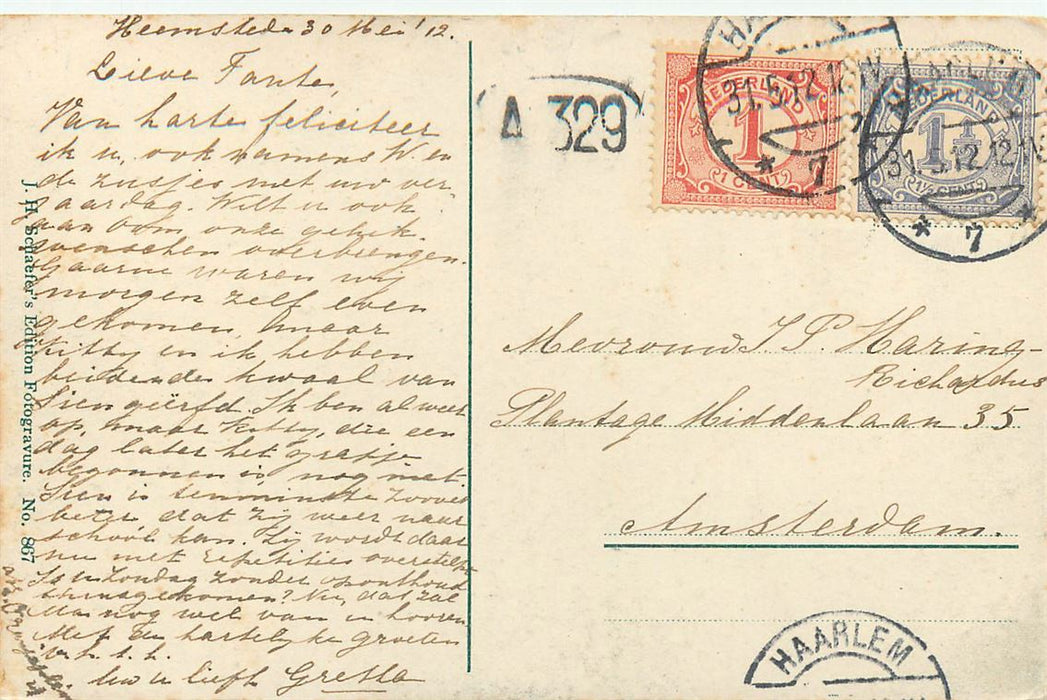 Heemstede 30 Mei '12.
Lieve Tante,
Van harte feliciteer
ik u, ook namens W. en
de zusjes met uw ver-
jaardag. Wilt u ook
aan Oom onze geluk-
wenschen overbrengen.
Gaarne waren wij
morgen zelf even
gekomen, maar
Kitty en ik hebben
beiden de kwaal van
Sien geërfd. Ik ben al weer
op, maar Kitty, die een
dag later het grapje
begonnen is nog niet.
Sien is tenminste zooveel
beter dat zij weer naar
school kan. Zij wordt daar
nu met repetities overstelpt
Is u Zondag zonder oponthoud
thuisgekomen? Nu, dat zal
Ma nog wel van u hooren
Met de hartelijke groeten
v. h. t. h.
Uw u liefh Gretha
J. H. Schaefer's Edition Fotogravure. No. 867
A 329
HAARLEM
31.5.12.12-1V
* 7
NEDERLAND
1
1 CENT
31.5.12.12-1V
* 7
NEDERLAND
1½
1½ CENT
Mevrouw J. P. Haring-
Richardus
Plantage Middenlaan 35
Amsterdam.
HAARLEM